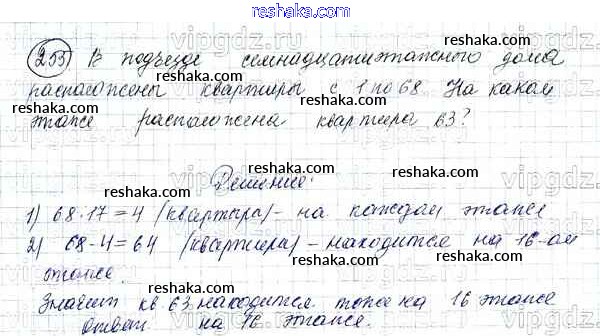 reshaka.com
255 В подъезде семнадцатиэтажного дома
расположены квартиры с 1 по 68. На каком
этаже расположена квартира 63?
reshaka.com
Решение:
1) 68:17=4 (квартира) - на каждом этаже
reshaka.com
2) 68-4=64 (квартира) - находится на 16-ом
этаже.
reshaka.com
Значит кв. 63 находится тоже на 16 этаже
Ответ: на 16 этаже.
reshaka.com
vipgdz.com